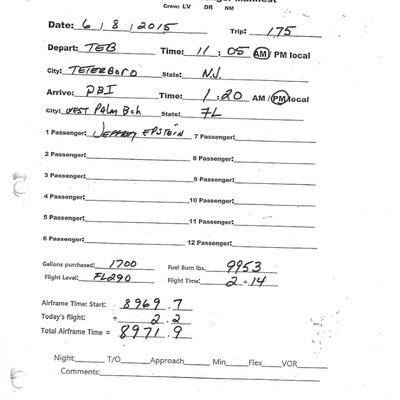 Crew: LV DR NM
Date: 6 / 8 / 2015 Trip: 175
Depart: TEB Time: 11 : 05 AM / PM local
City: TETERBORO State: N.J.
Arrive: PBI Time: 1 : 20 AM / PM local
City: WEST PALM Bch State: FL
1 Passenger: JEFFREY EPSTEIN 7 Passenger:
2 Passenger: 8 Passenger:
3 Passenger: 9 Passenger:
4 Passenger: 10 Passenger:
5 Passenger: 11 Passenger:
6 Passenger: 12 Passenger:
Gallons purchased: 1700 Fuel Burn lbs. 9953
Flight Level: FL290 Flight Time: 2 + 14
Airframe Time: Start: 8969.7
Today's flight: + 2.2
Total Airframe Time = 8971.9
Night: T/O Approach Min Flex VOR
Comments: